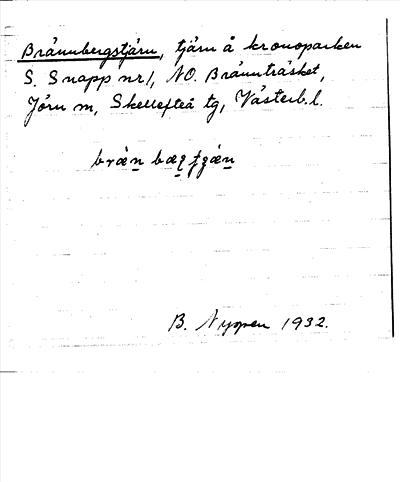 Brännbergstjärn, tjärn å kronoparken
S. Snapp nr 1, NO. Brännträsket,
Jörn sn, Skellefteå tg, Västerb. l.
B. Nyssen 1932.